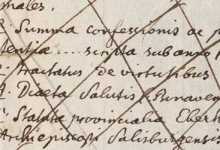 nales.
Summa confessionis ac p
lentia ... scripta sub anno
Tractatus de virtutibus
Diaeta Salutis Bonaven
Statuta provincialia Eberh
Archiepiscopi Salisburgens